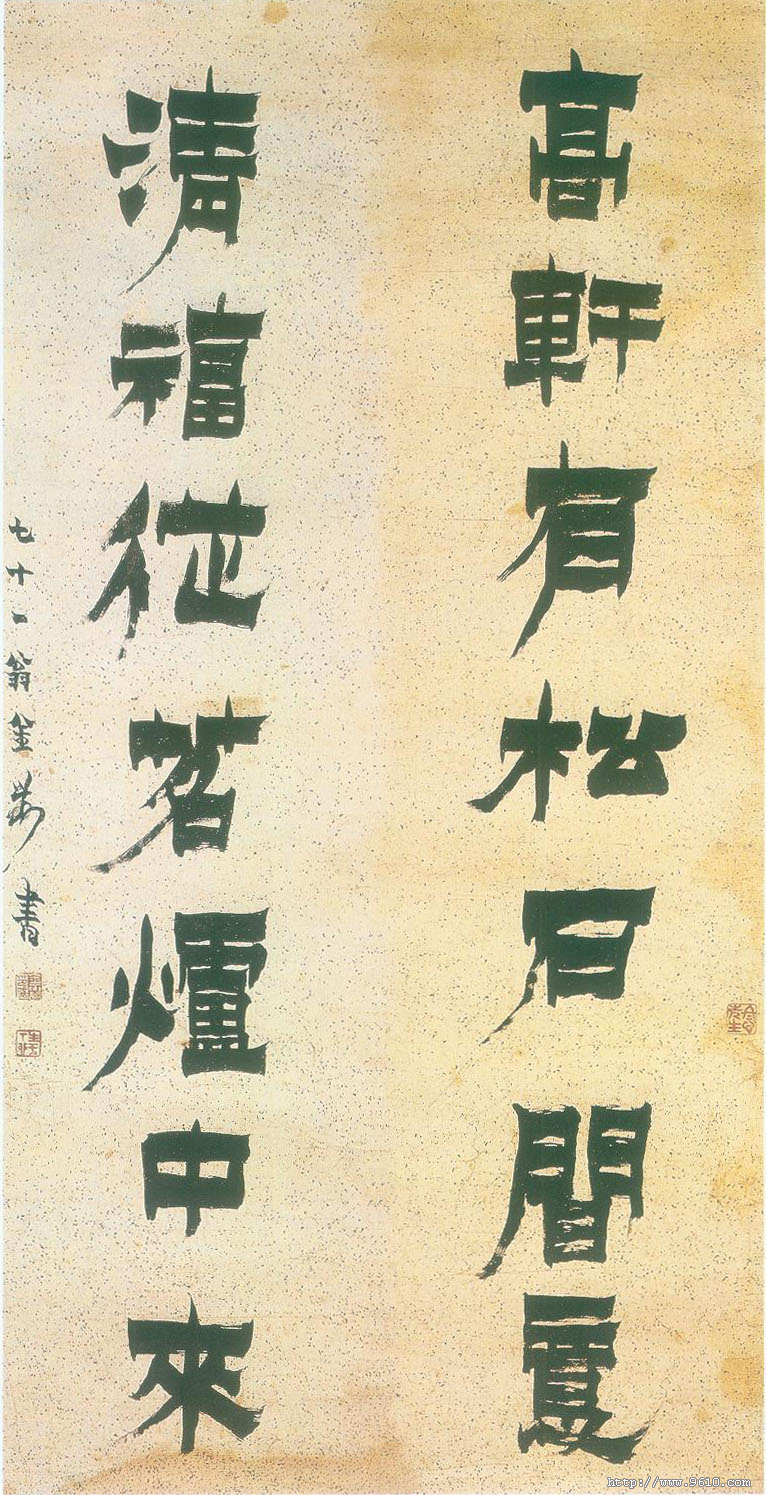 高軒有松石間
清福從茗爐中來
七十一翁金農書
冬心先生
http://www.9610.com